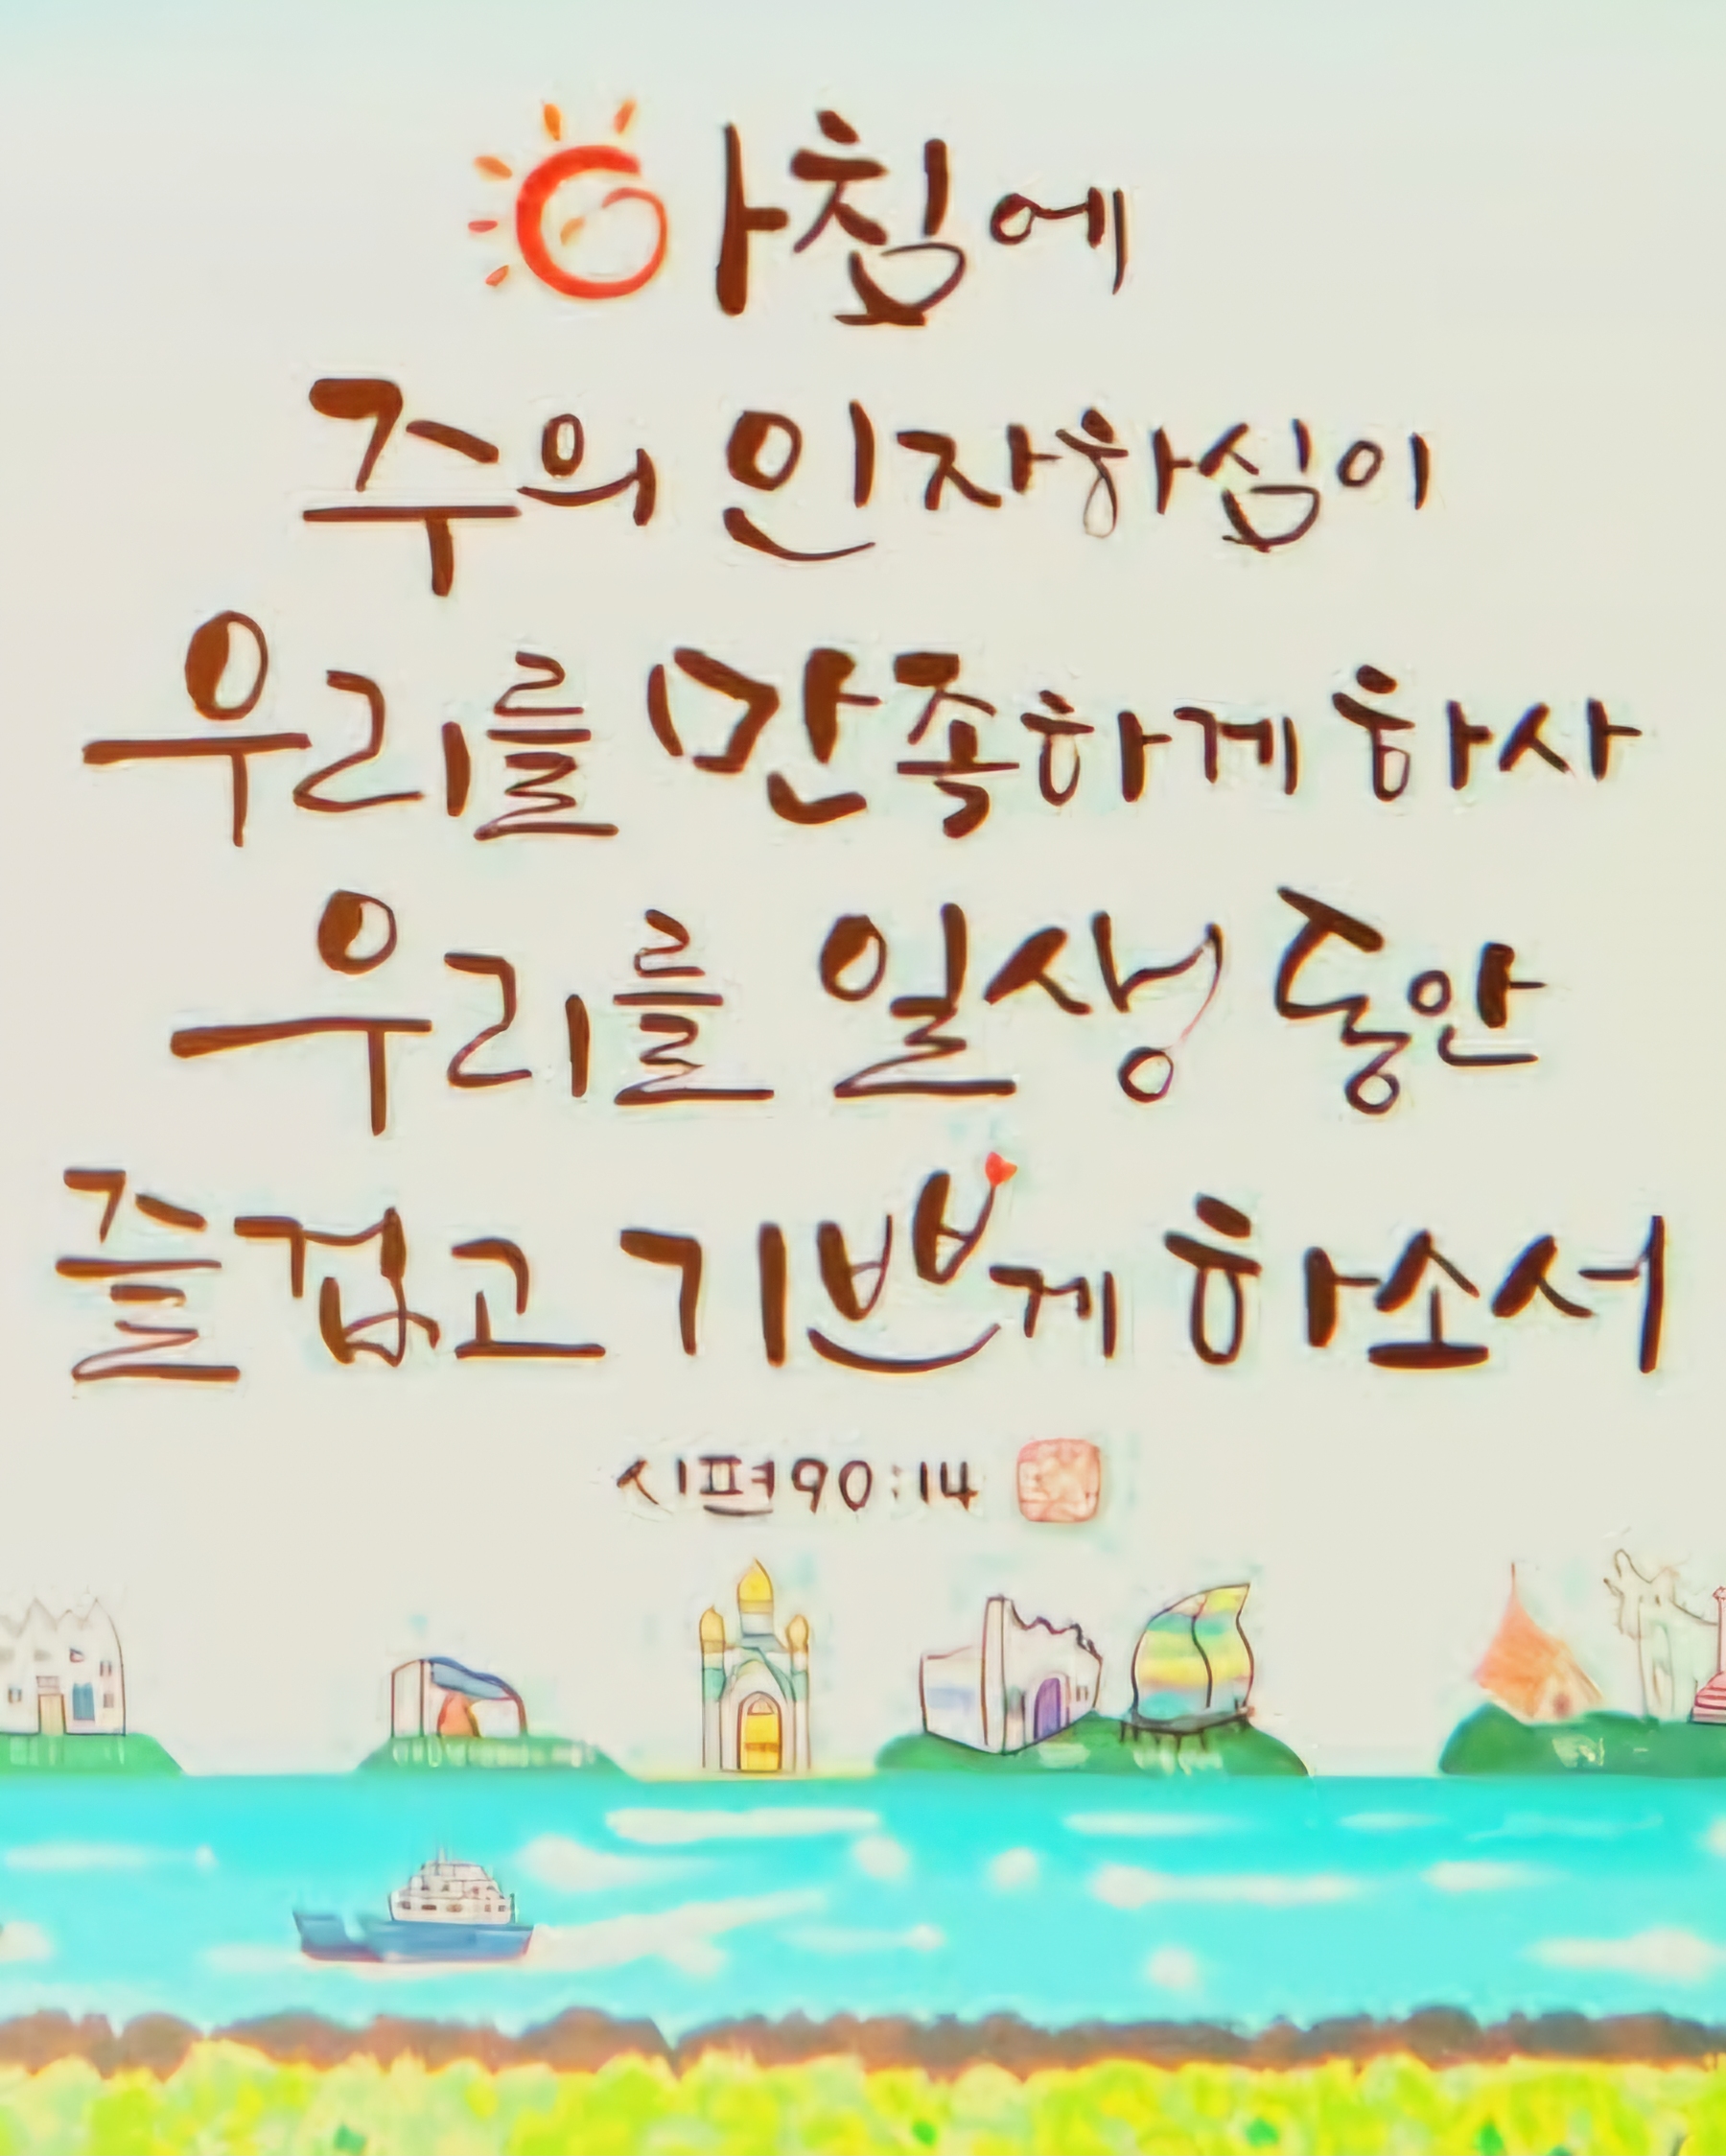 아침에
주의 인자하심이
우리를 만족하게 하사
우리를 일생 동안
즐겁고 기쁘게 하소서
시편90:14